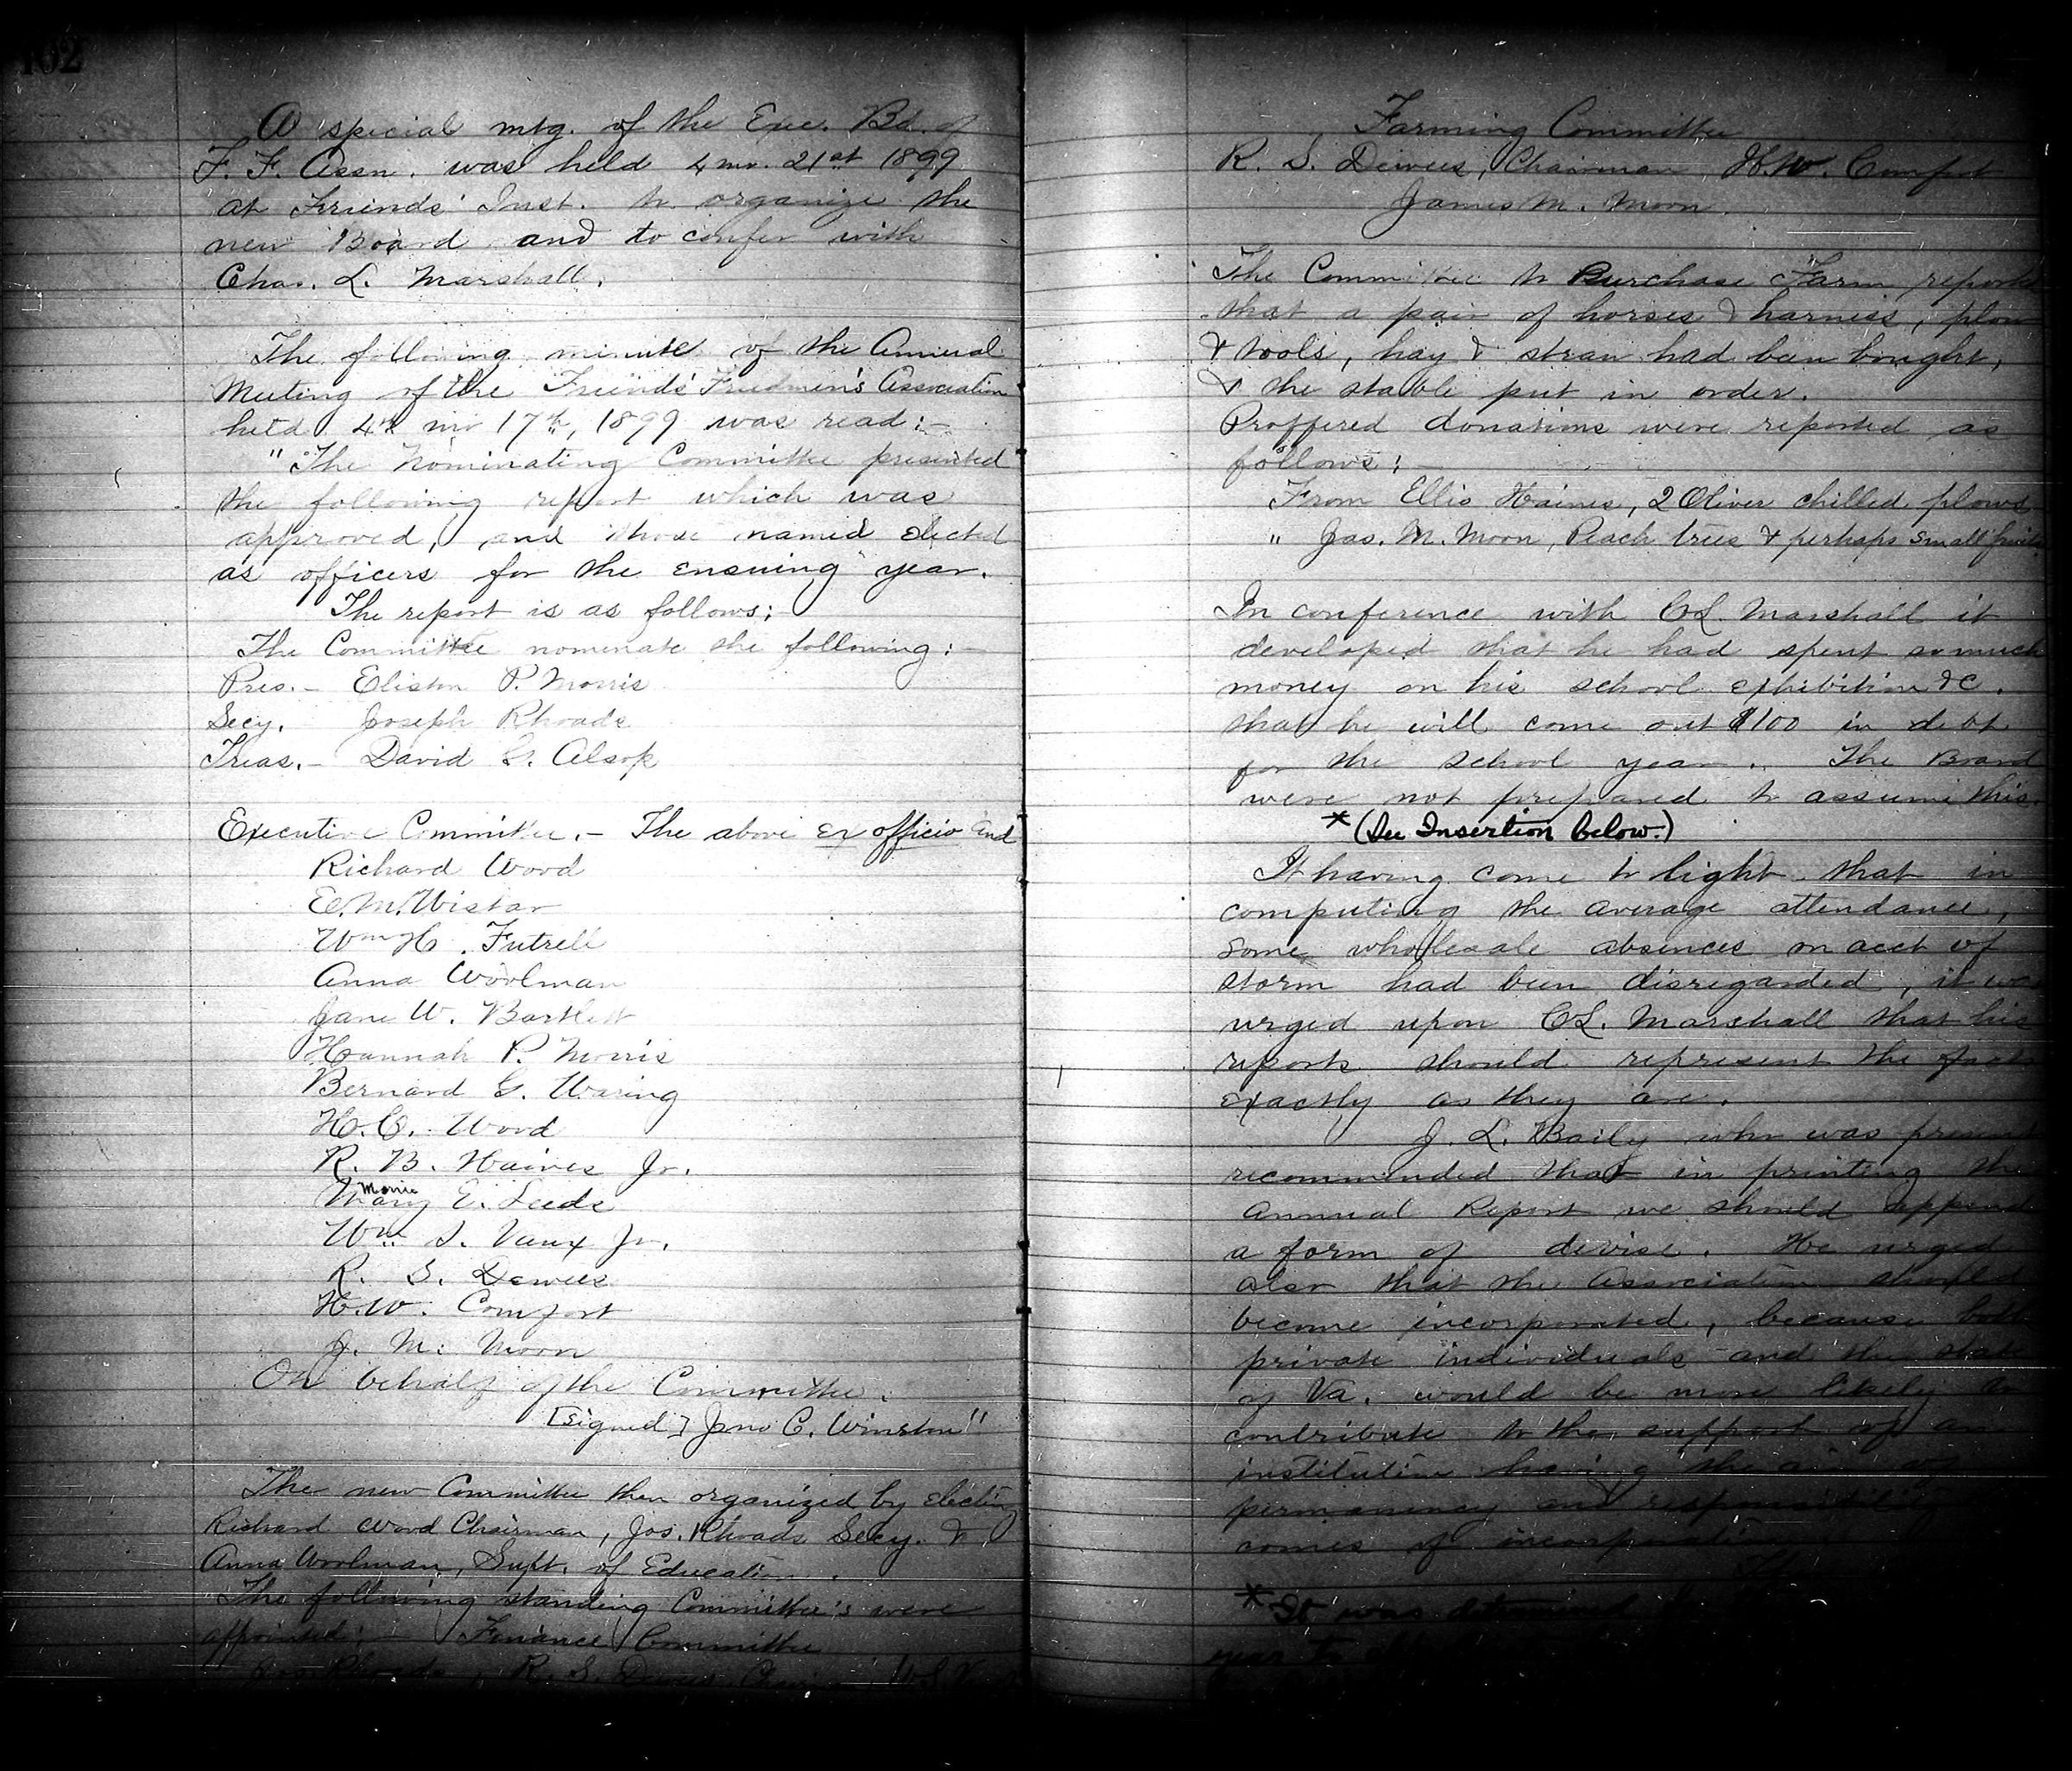 102
A special mtg. of the Exec. Bd. of
F. F. Assn. was held 4 mo. 21st 1899
at Friends' Inst. to organize the
new Board and to confer with
Chas. L. Marshall.
The following minute of the Annual
Meeting of the Friends' Freedmen's Association
held 4th mo 17th, 1899 was read:-
"The Nominating Committee presented
the following report which was
approved, and those named elected
as officers for the ensuing year.
The report is as follows:
The Committee nominate the following:-
Pres.- Eliston P. Morris
Secy. Joseph Rhoads
Treas.- David G. Alsop
Executive Committee.- The above ex officio and
Richard Wood
E. M. Wistar
Wm H. Futrell
Anna Woolman
Jane W. Bartlett
Hannah P. Morris
Bernard G. Waring
H. C. Wood
R. B. Haines Jr.
Morris
Mary E. Leeds
Wm. S. Vaux Jr.
R. S. Dewees
H. W. Comfort
J. M. Moon
On behalf of the Committee.
[signed] Jno C. Winston"
The new Committee then organized by electing
Richard Wood Chairman, Jos. Rhoads Secy. &
Anna Woolman, Supt. of Education.
The following standing Committee's were
appointed:- Finance Committee
Jos. Rhoads, R. S. Dewees, W. S. Vaux
Farming Committee
R. S. Dewees, Chairman H. W. Comfort
James M. Moon.
The Committee to Purchase Farm reports
that a pair of horses & harness, plow
& tools, hay & straw had been bought,
& the stable put in order.
Proffered donations were reported as
follows:-
From Ellis Haines, 2 Oliver chilled plows
" Jas. M. Moon, Peach trees & perhaps small fruits
In conference with C. L. Marshall it
developed that he had spent so much
money on his school exhibition &c.
that he will come out $100 in debt
for the school year. The Board
were not prepared to assume this.
* (See Insertion below.)
It having come to light that in
computing the average attendance,
some wholesale absences on acct of
storm had been disregarded, it was
urged upon C. L. Marshall that his
reports should represent the facts
exactly as they are.
J. L. Baily who was present
recommended that in printing the
Annual Report we should append
a form of devise. He urged
also that the Association should
become incorporated, because both
private individuals and the state
of Va. would be more likely to
contribute to the support of an
institution having the air of
permanency and responsibility
comes of incorporation
* It was determined
year to